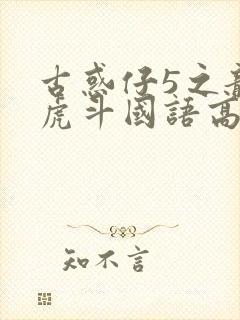 古惑仔5之龍
虎斗國語高
知不言